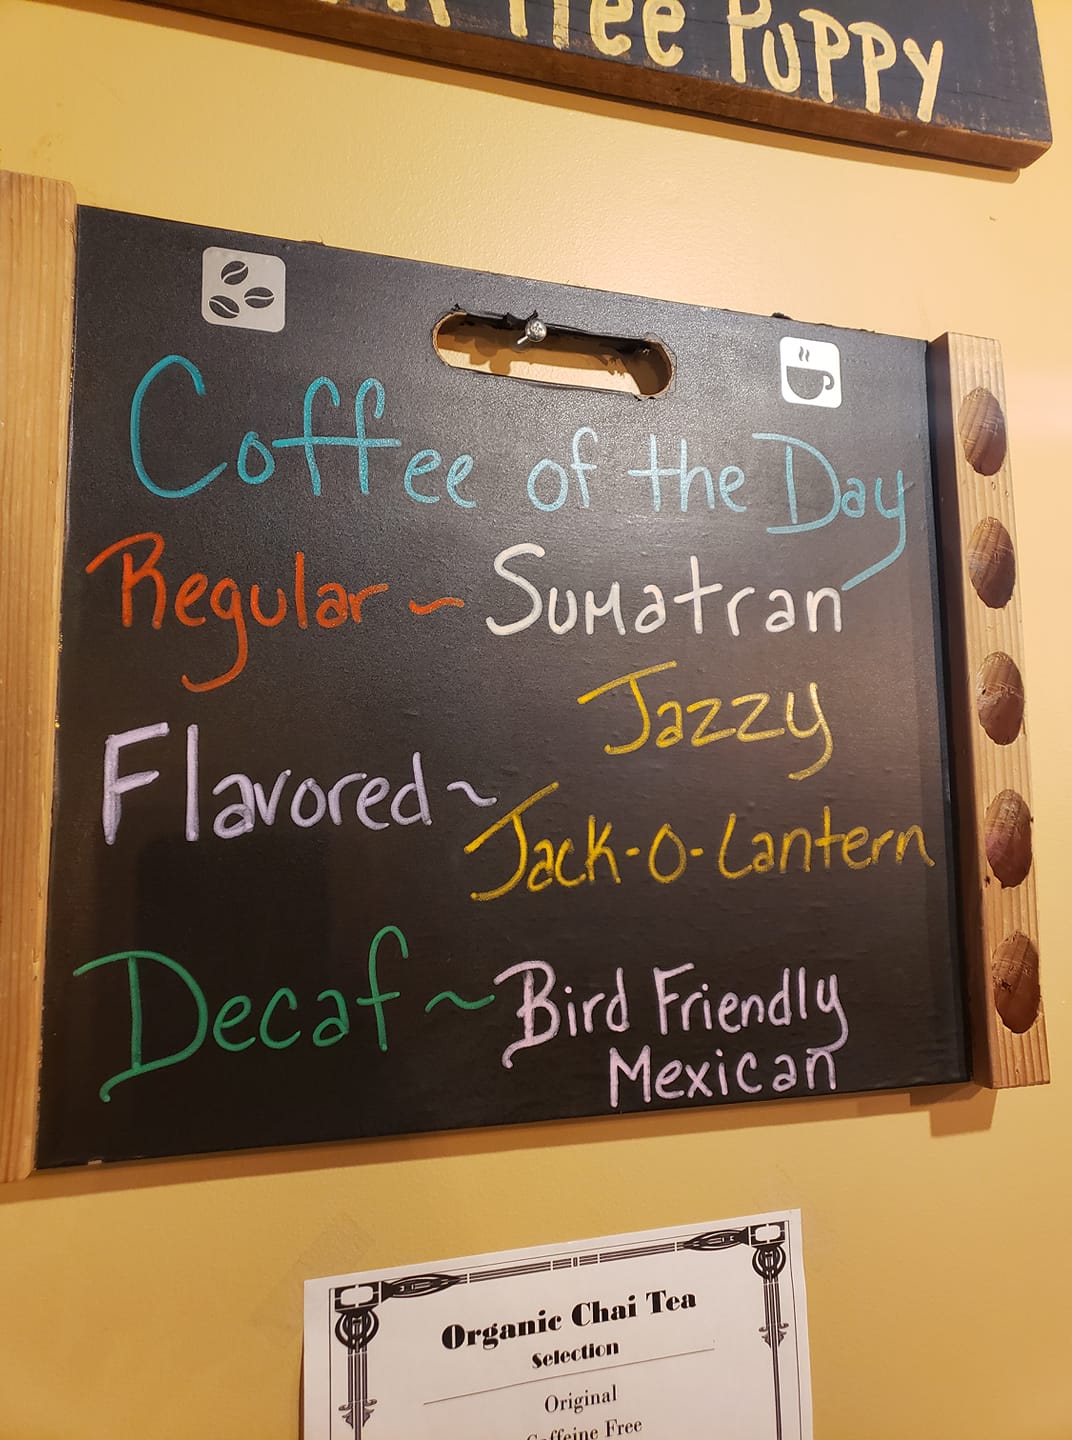 Free PUPPY
Coffee of the Day
Regular ~ Sumatran
Jazzy
Flavored ~
Jack-O-Lantern
Decaf ~ Bird Friendly
Mexican
Organic Chai Tea
Selection
Original
Caffeine Free